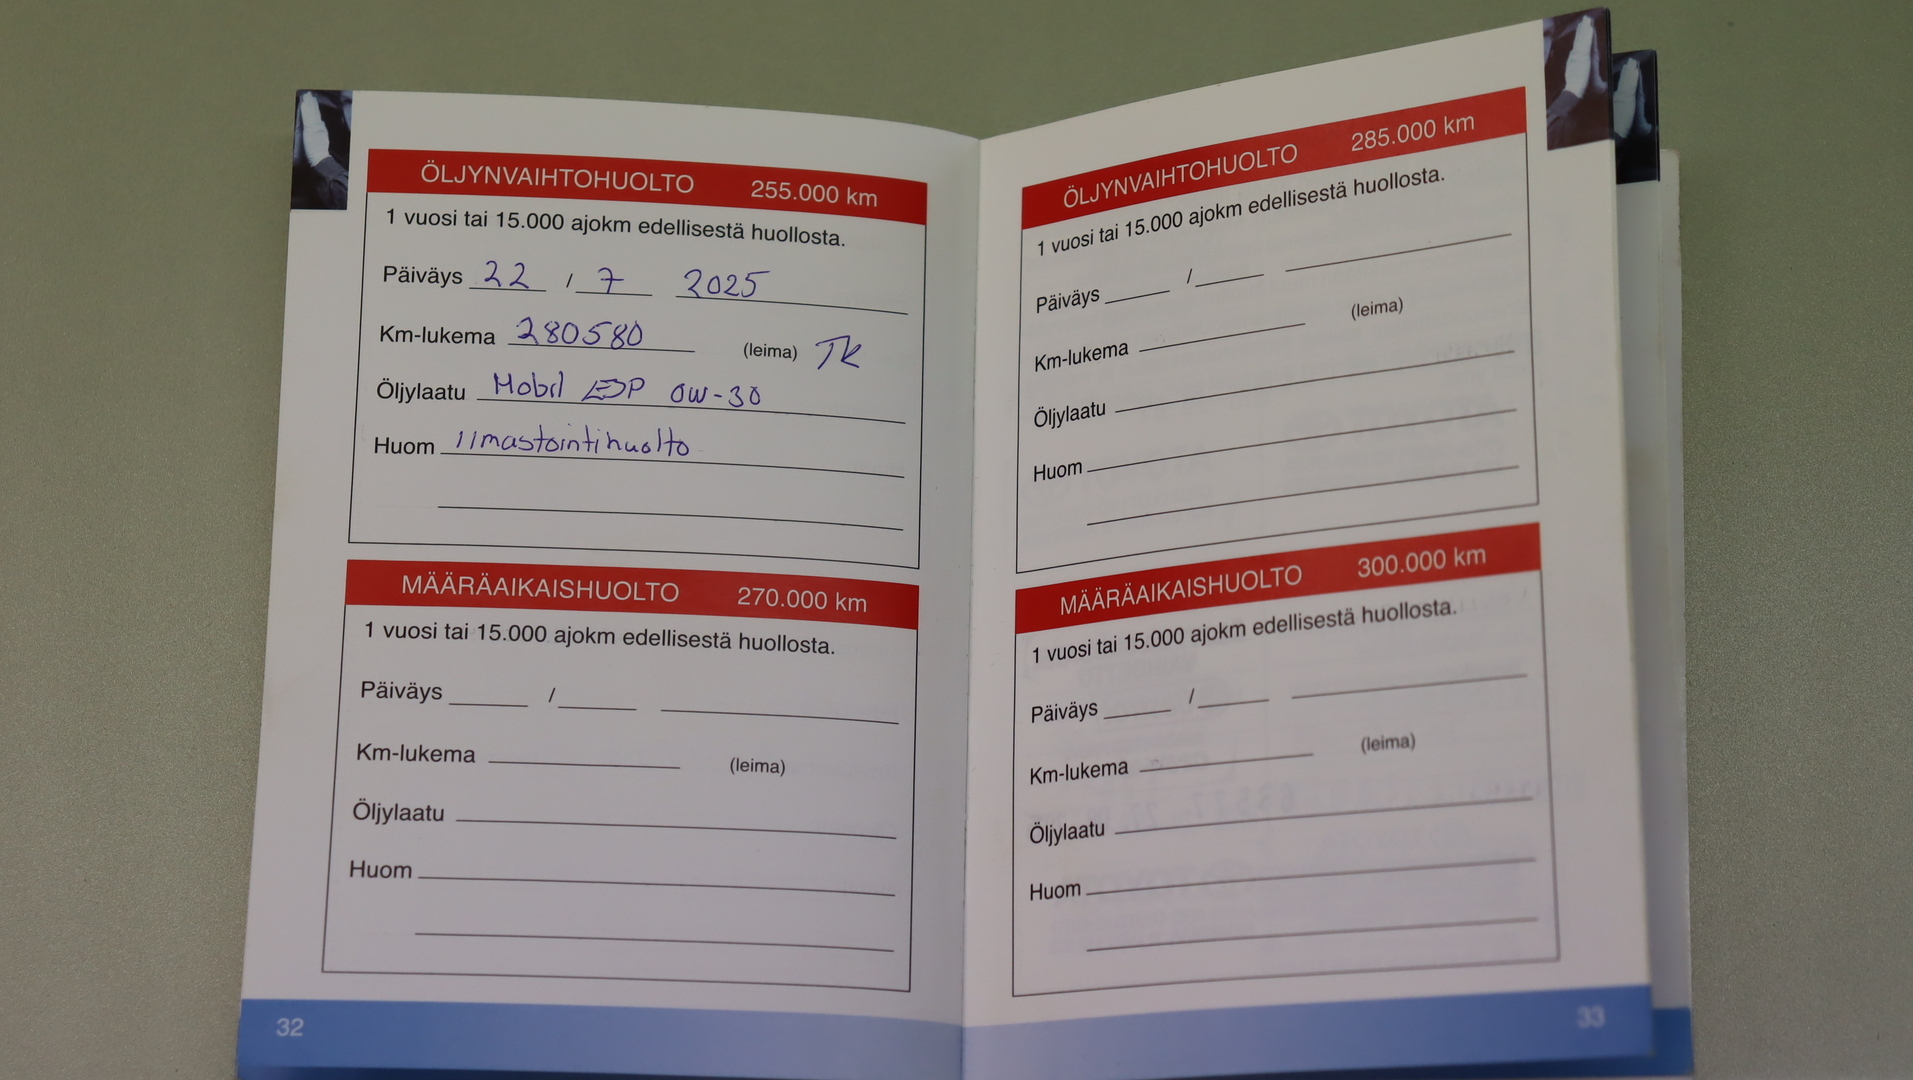 ÖLJYNVAIHTOHUOLTO 255.000 km
1 vuosi tai 15.000 ajokm edellisestä huollosta.
Päiväys 22 / 7 2025
Km-lukema 280580 (leima) TK
Öljylaatu Mobil ESP 0W-30
Huom ilmastointihuolto
MÄÄRÄAIKAISHUOLTO 270.000 km
1 vuosi tai 15.000 ajokm edellisestä huollosta.
Päiväys /
Km-lukema (leima)
Öljylaatu
Huom
32
ÖLJYNVAIHTOHUOLTO 285.000 km
1 vuosi tai 15.000 ajokm edellisestä huollosta.
Päiväys /
Km-lukema (leima)
Öljylaatu
Huom
MÄÄRÄAIKAISHUOLTO 300.000 km
1 vuosi tai 15.000 ajokm edellisestä huollosta.
Päiväys /
Km-lukema (leima)
Öljylaatu
Huom
33